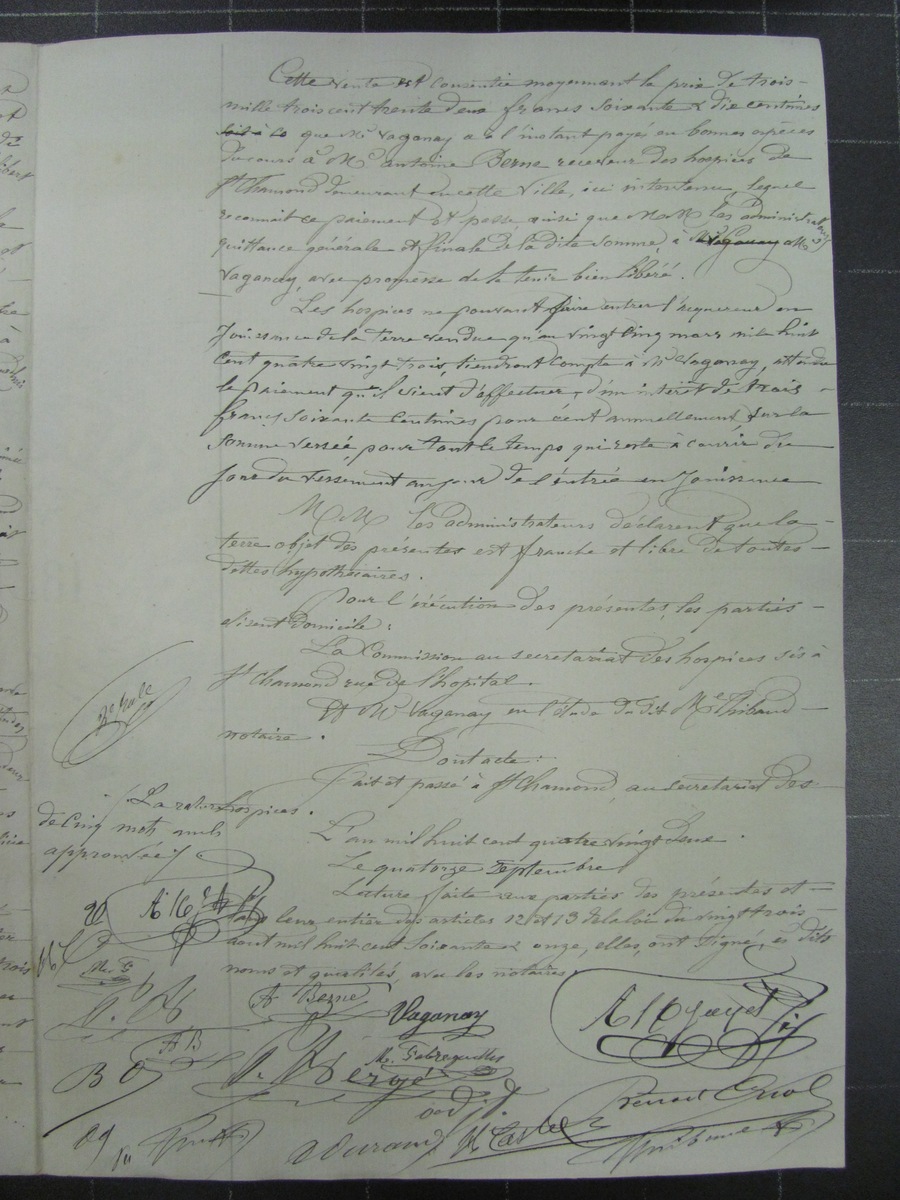 Cette vente est consentie moyennant le prix de trois
mille trois cent trente deux francs soixante & dix centimes
que Mr Vaganay a à l'instant payée en bonnes espèces
du cours à Mr antoine Berne receveur des hospices de
St Chamond demeurant en cette Ville, ici intervenu, lequel
reconnait ce paiement et passe ainsi que M M les administrateurs
quittance générale et finale de la dite somme, à Mr Vaganay
Vaganay, avec promesse de le tenir bien libéré.
Les hospices ne pouvant faire entrer l'acquereur en
Jouissance de la terre vendue qu'au vingt cinq mars mil huit
Cent quatre vingt trois, tiendront Compte à Mr Vaganay, attendu
le paiement qu'il vient d'effectuer, d'un intérêt de trois
francs soixante centimes pour cent annuellement sur la
somme versée, pour tout le temps qui reste à courir du
jour du versement au jour de l'entrée en Jouissance
M M les administrateurs déclarent que la
terre objet des présentes est franche et libre de toutes
dettes hypothécaires.
Pour l'exécution des présentes, les parties
elisent Domicile:
La Commission au secretariat des hospices sis à
St Chamond rue de l'hopital.
Et Mr Vaganay en l'étude du dit Me Thibaud
notaire.
Dont acte:
Fait et passé à St Chamond, au secretariat des
hospices.
L'an mil huit cent quatre vingt Deux.
Le quatorze Septembre
Lecture faite aux parties des présentes et
dans leur entier des articles 12 et 13 de la loi du vingt trois
aout mil huit cent soixante & onze, elles, ont signé, ès dits
noms et qualités, avec les notaires.
3e Rôle
La rature
de Cinq mots nuls
approuvée
A. Berne
Vaganay
A B
Vergé
A Durand